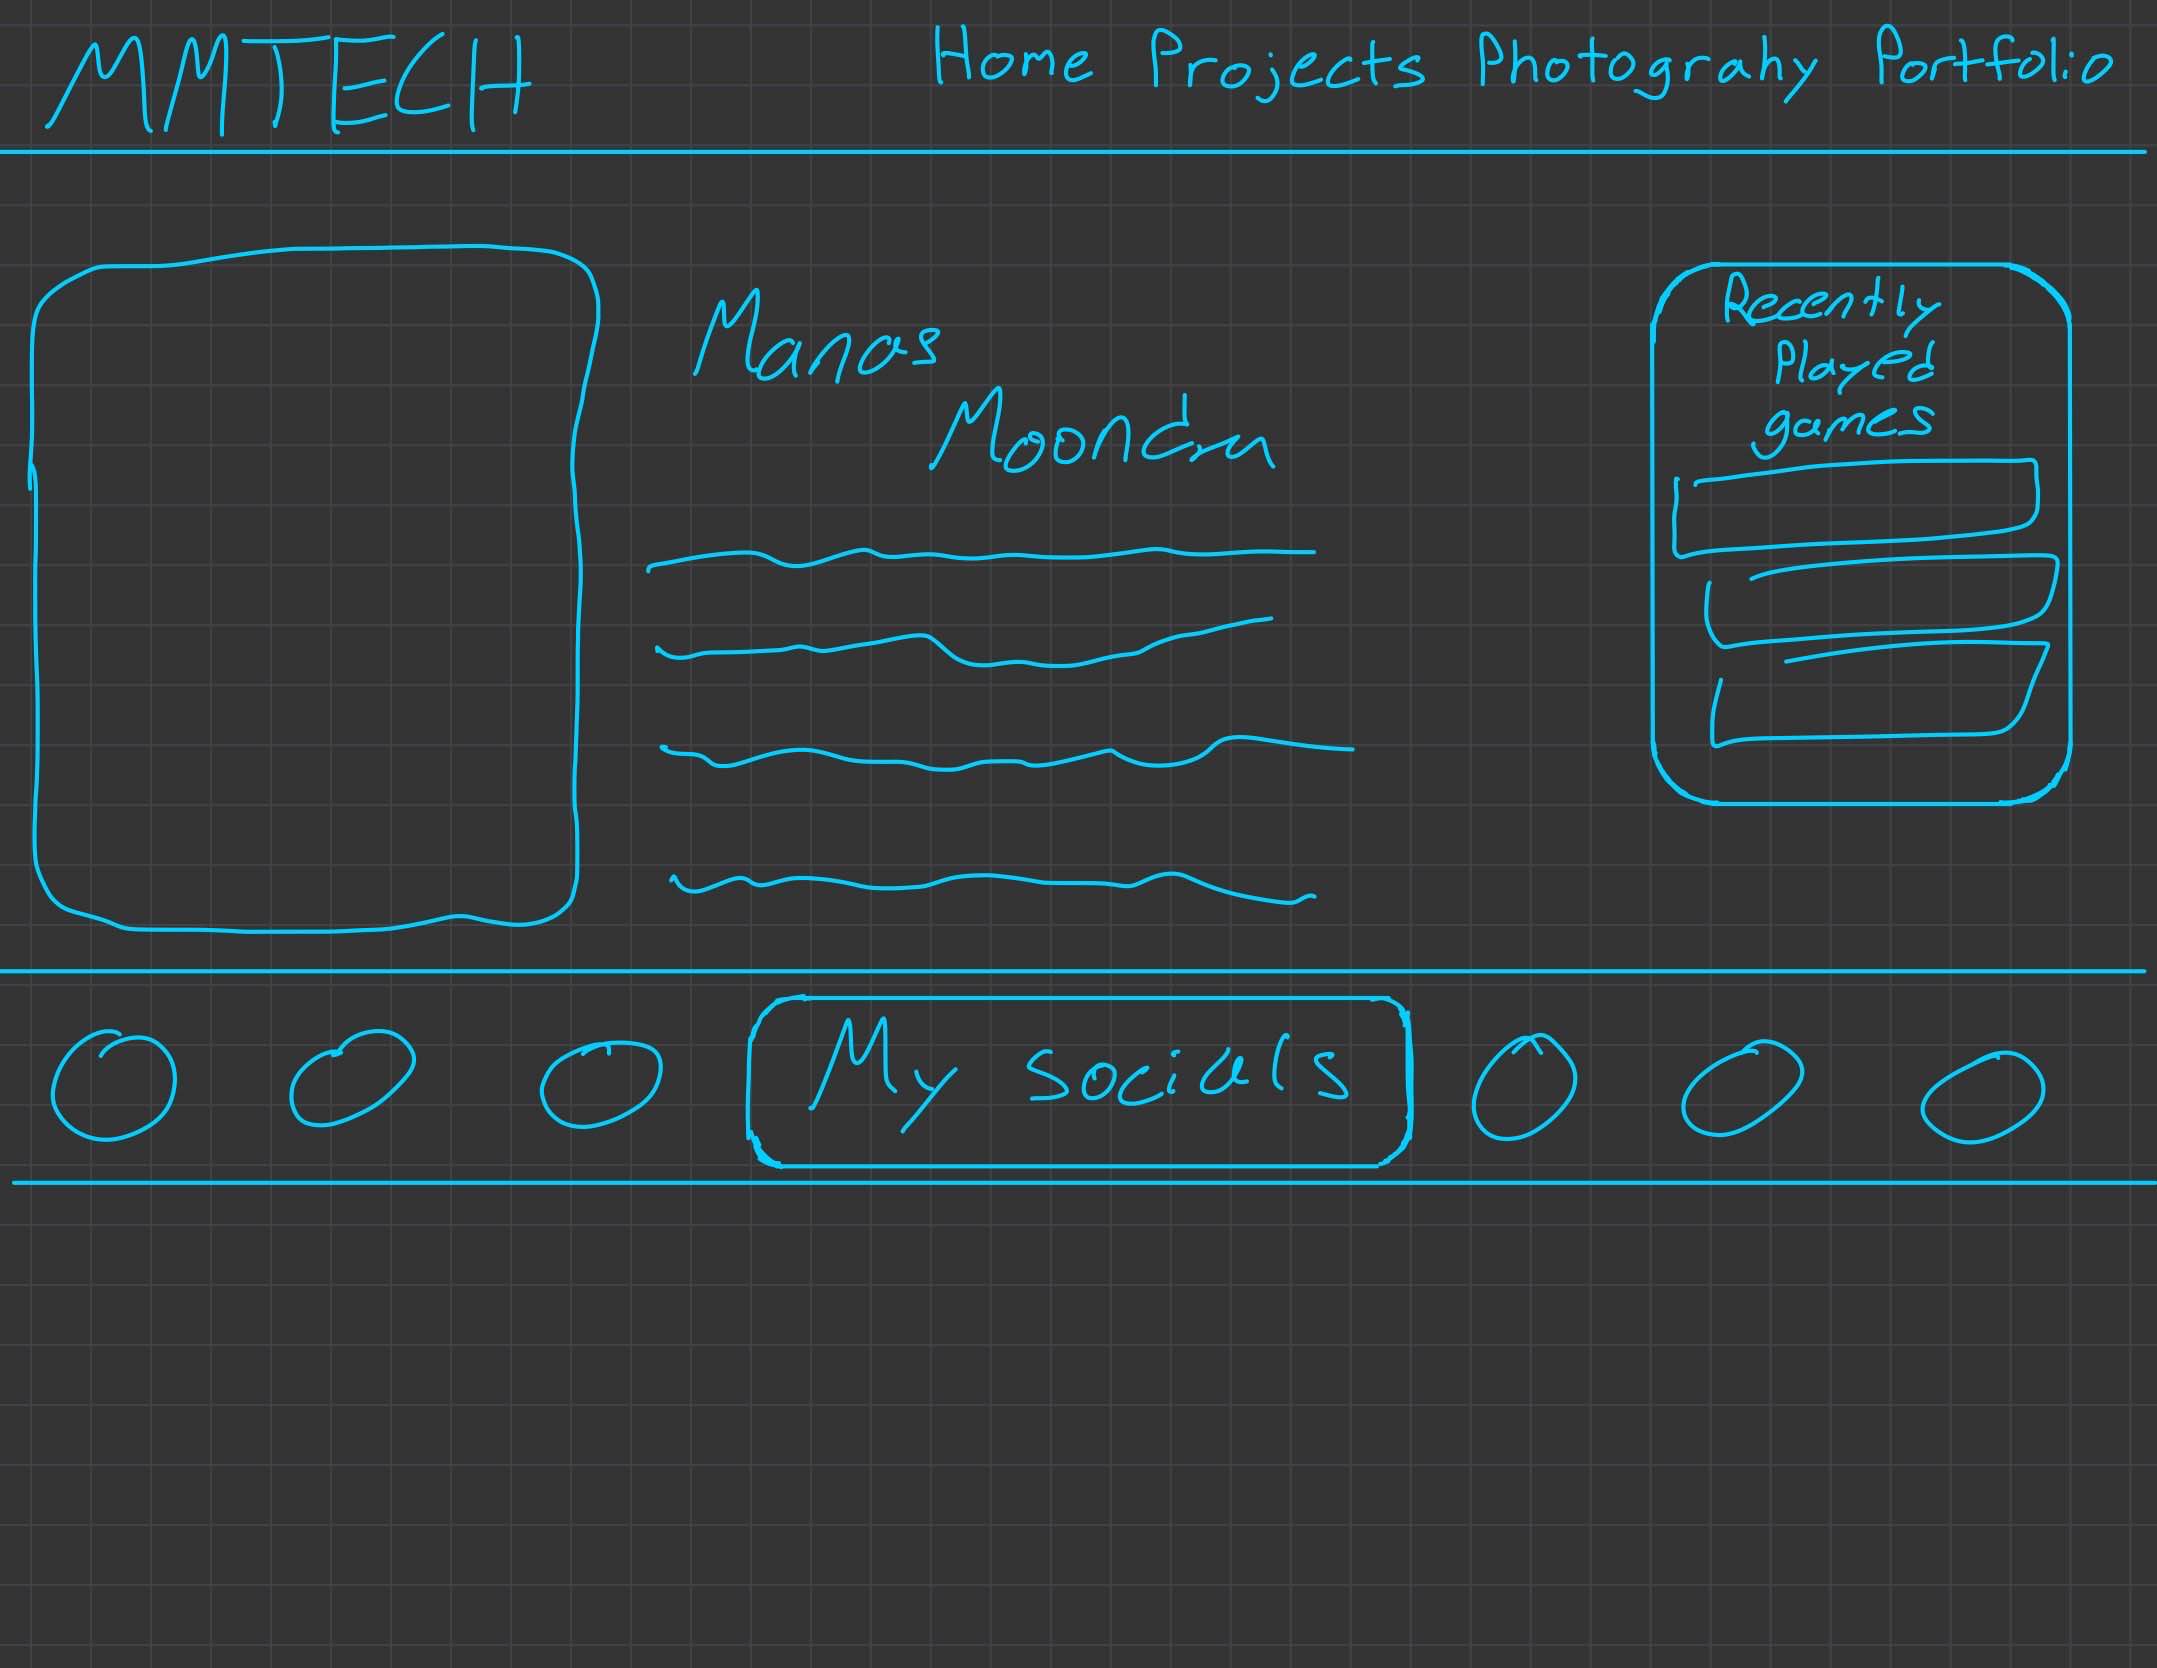 MMTECH
Home Projects Photograhy Portfolio
Manas
Moondra
Recently
Played
games
My socials